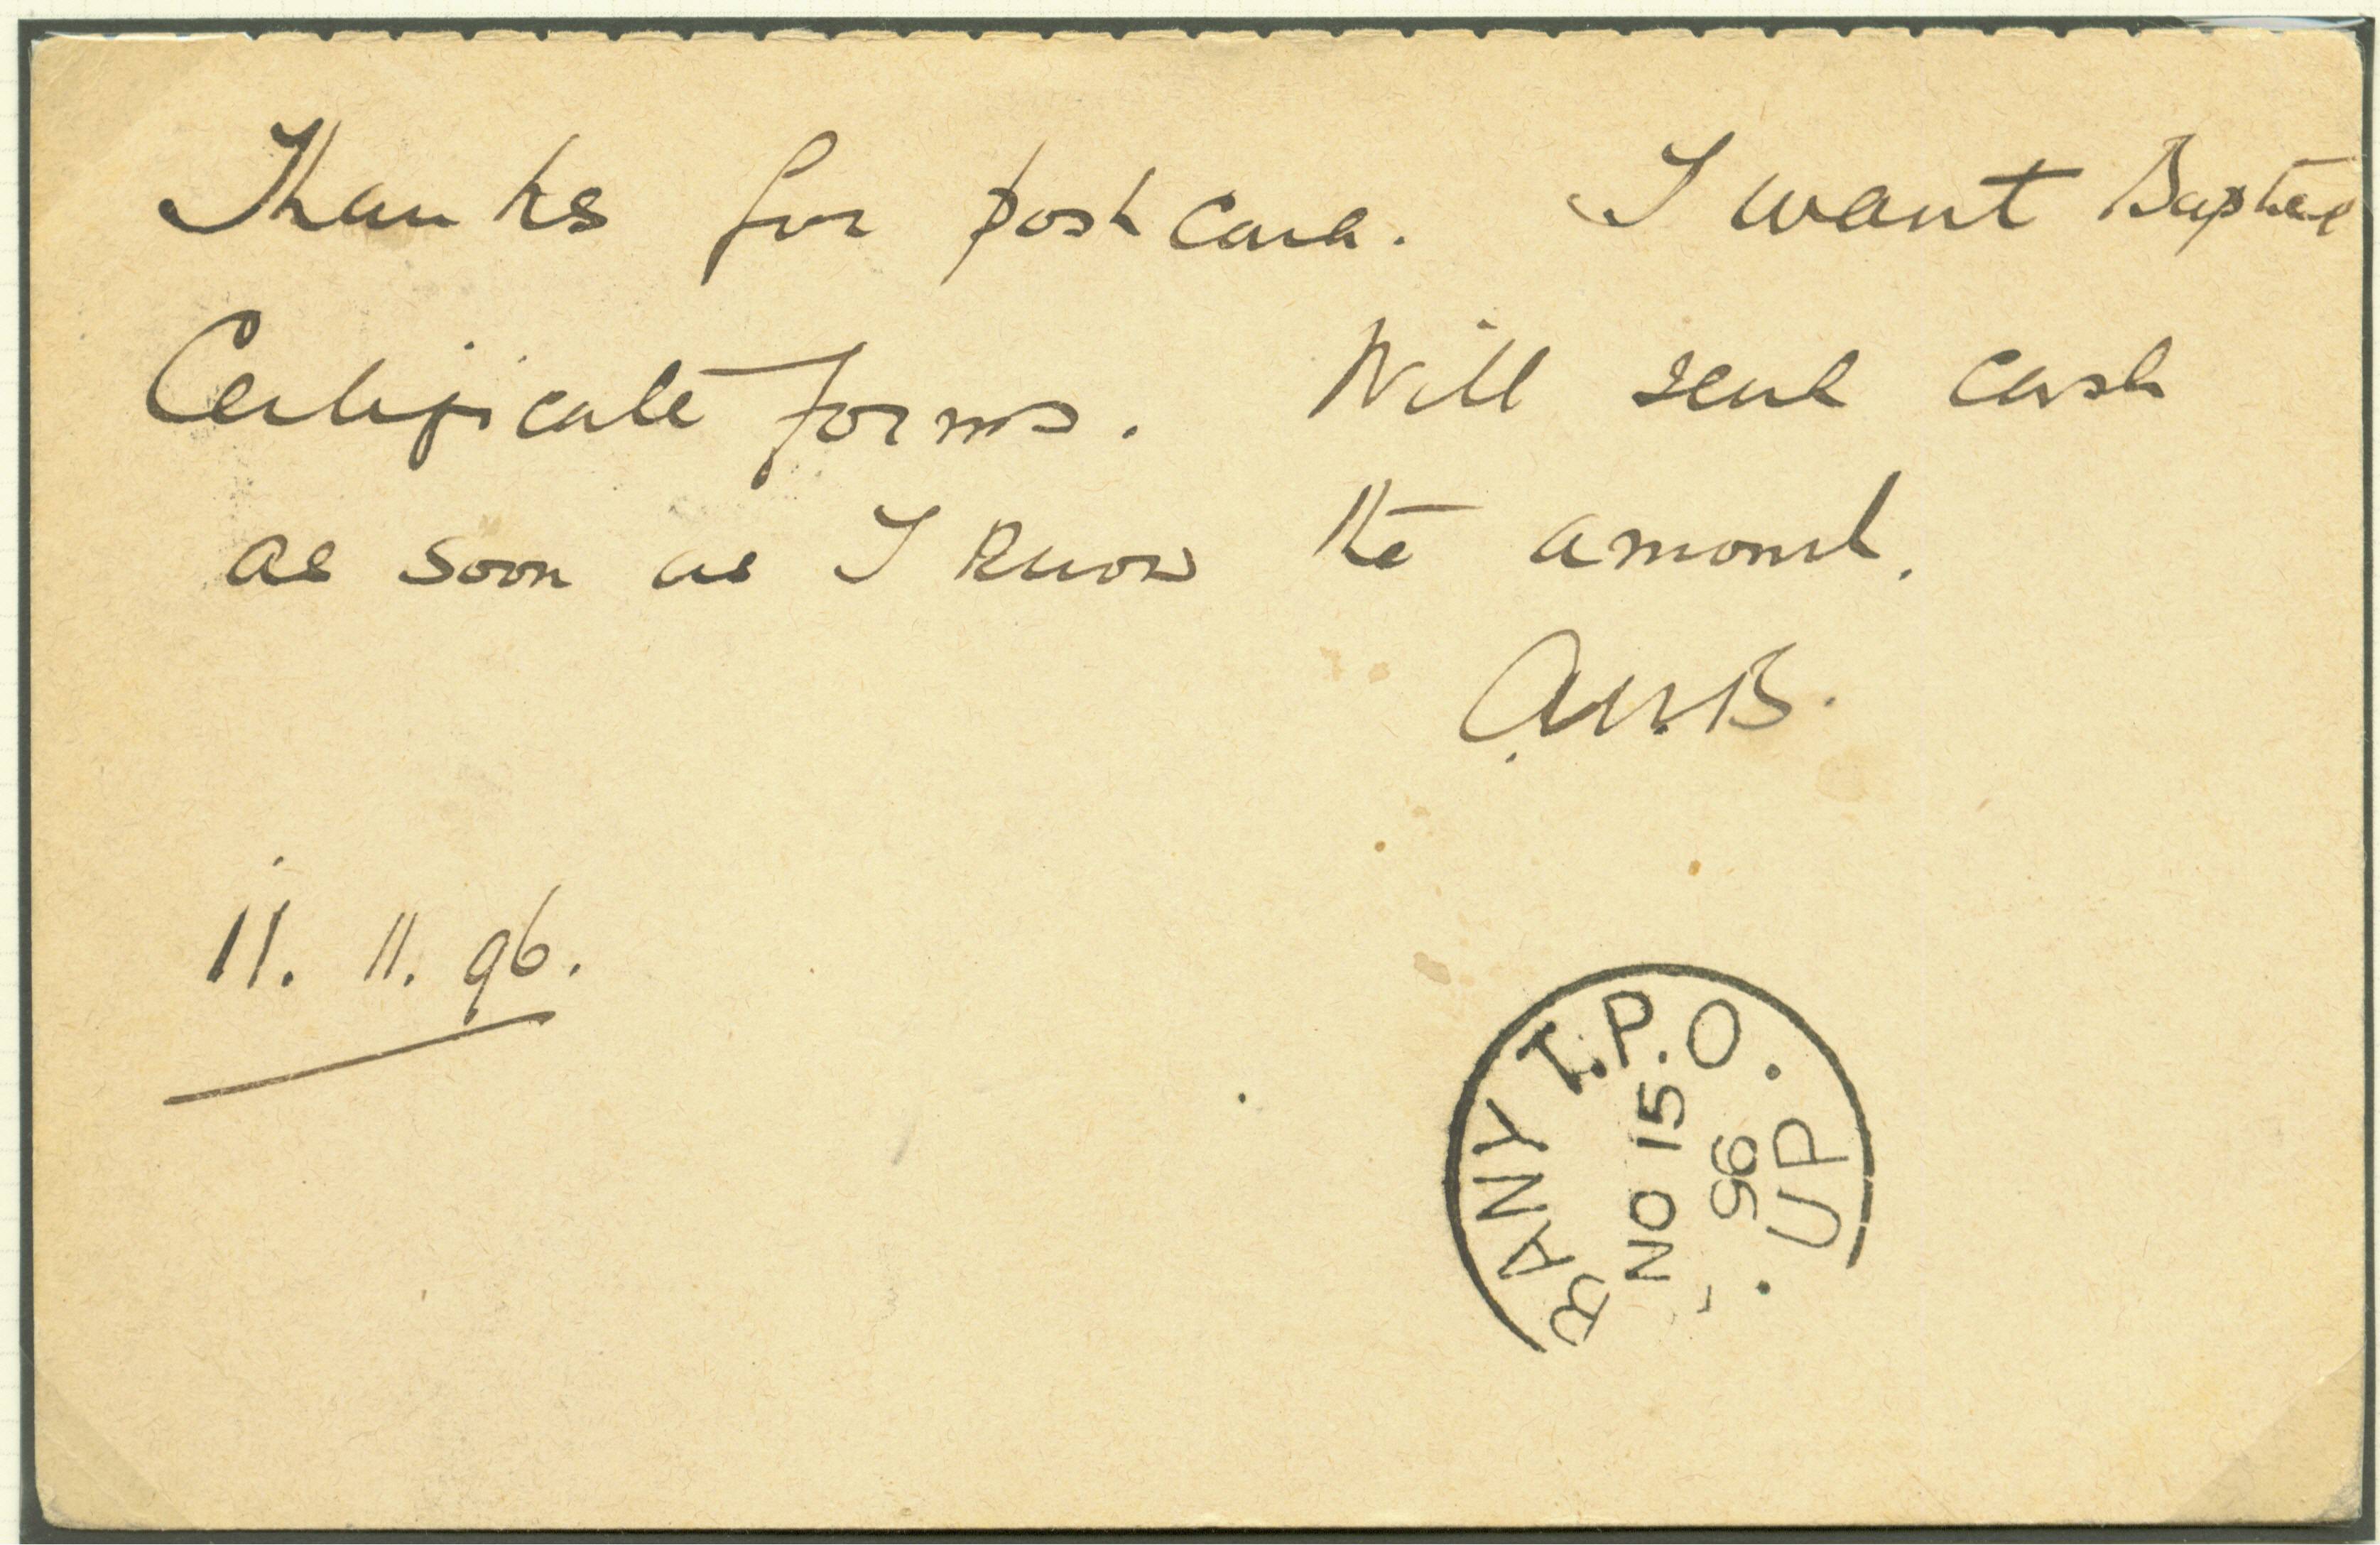 Thanks for post card. I want
Certificate forms. Will send cash
as soon as I know the amount.
A.W.B.
11. 11. 96.
BANY T.P.O. . UP .
NO 15
96